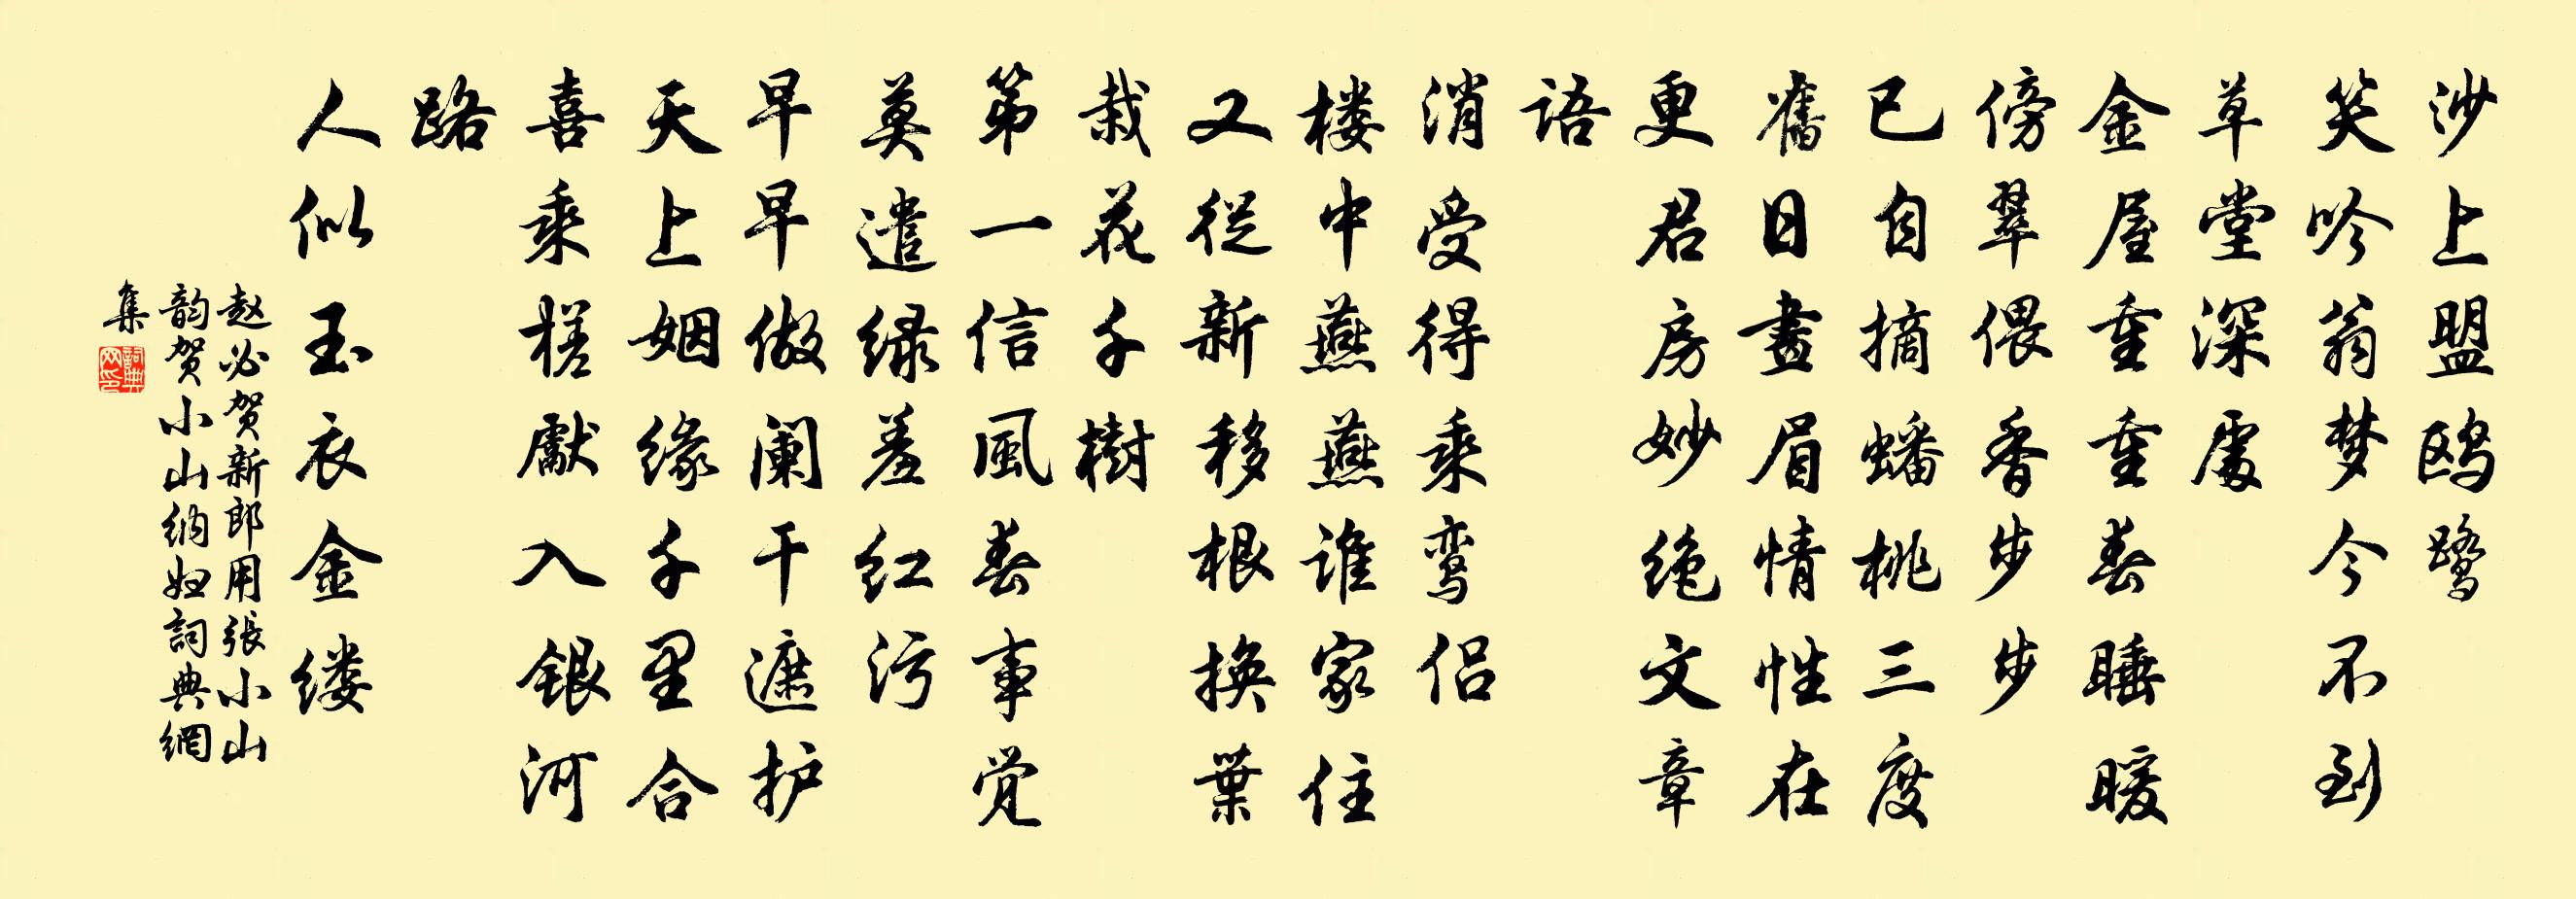 沙上盟鸥鹭
笑吟翁梦今不到
草堂深處
金屋重重春睡暖
傍翠偎香步步
已自摘蟠桃三度
舊日畫眉情性在
更君房妙绝文章
语
消受得乘鸾侣
楼中燕燕谁家住
又從新移根换葉
栽花千樹
第一信風春事觉
莫遣绿羞红污
早早做阑干遮护
天上姻缘千里合
喜乘槎獻入银河
路
人似玉衣金缕
赵必贺新郎用張小山
韵贺小山纳妇詞典網
集
詞典
网印